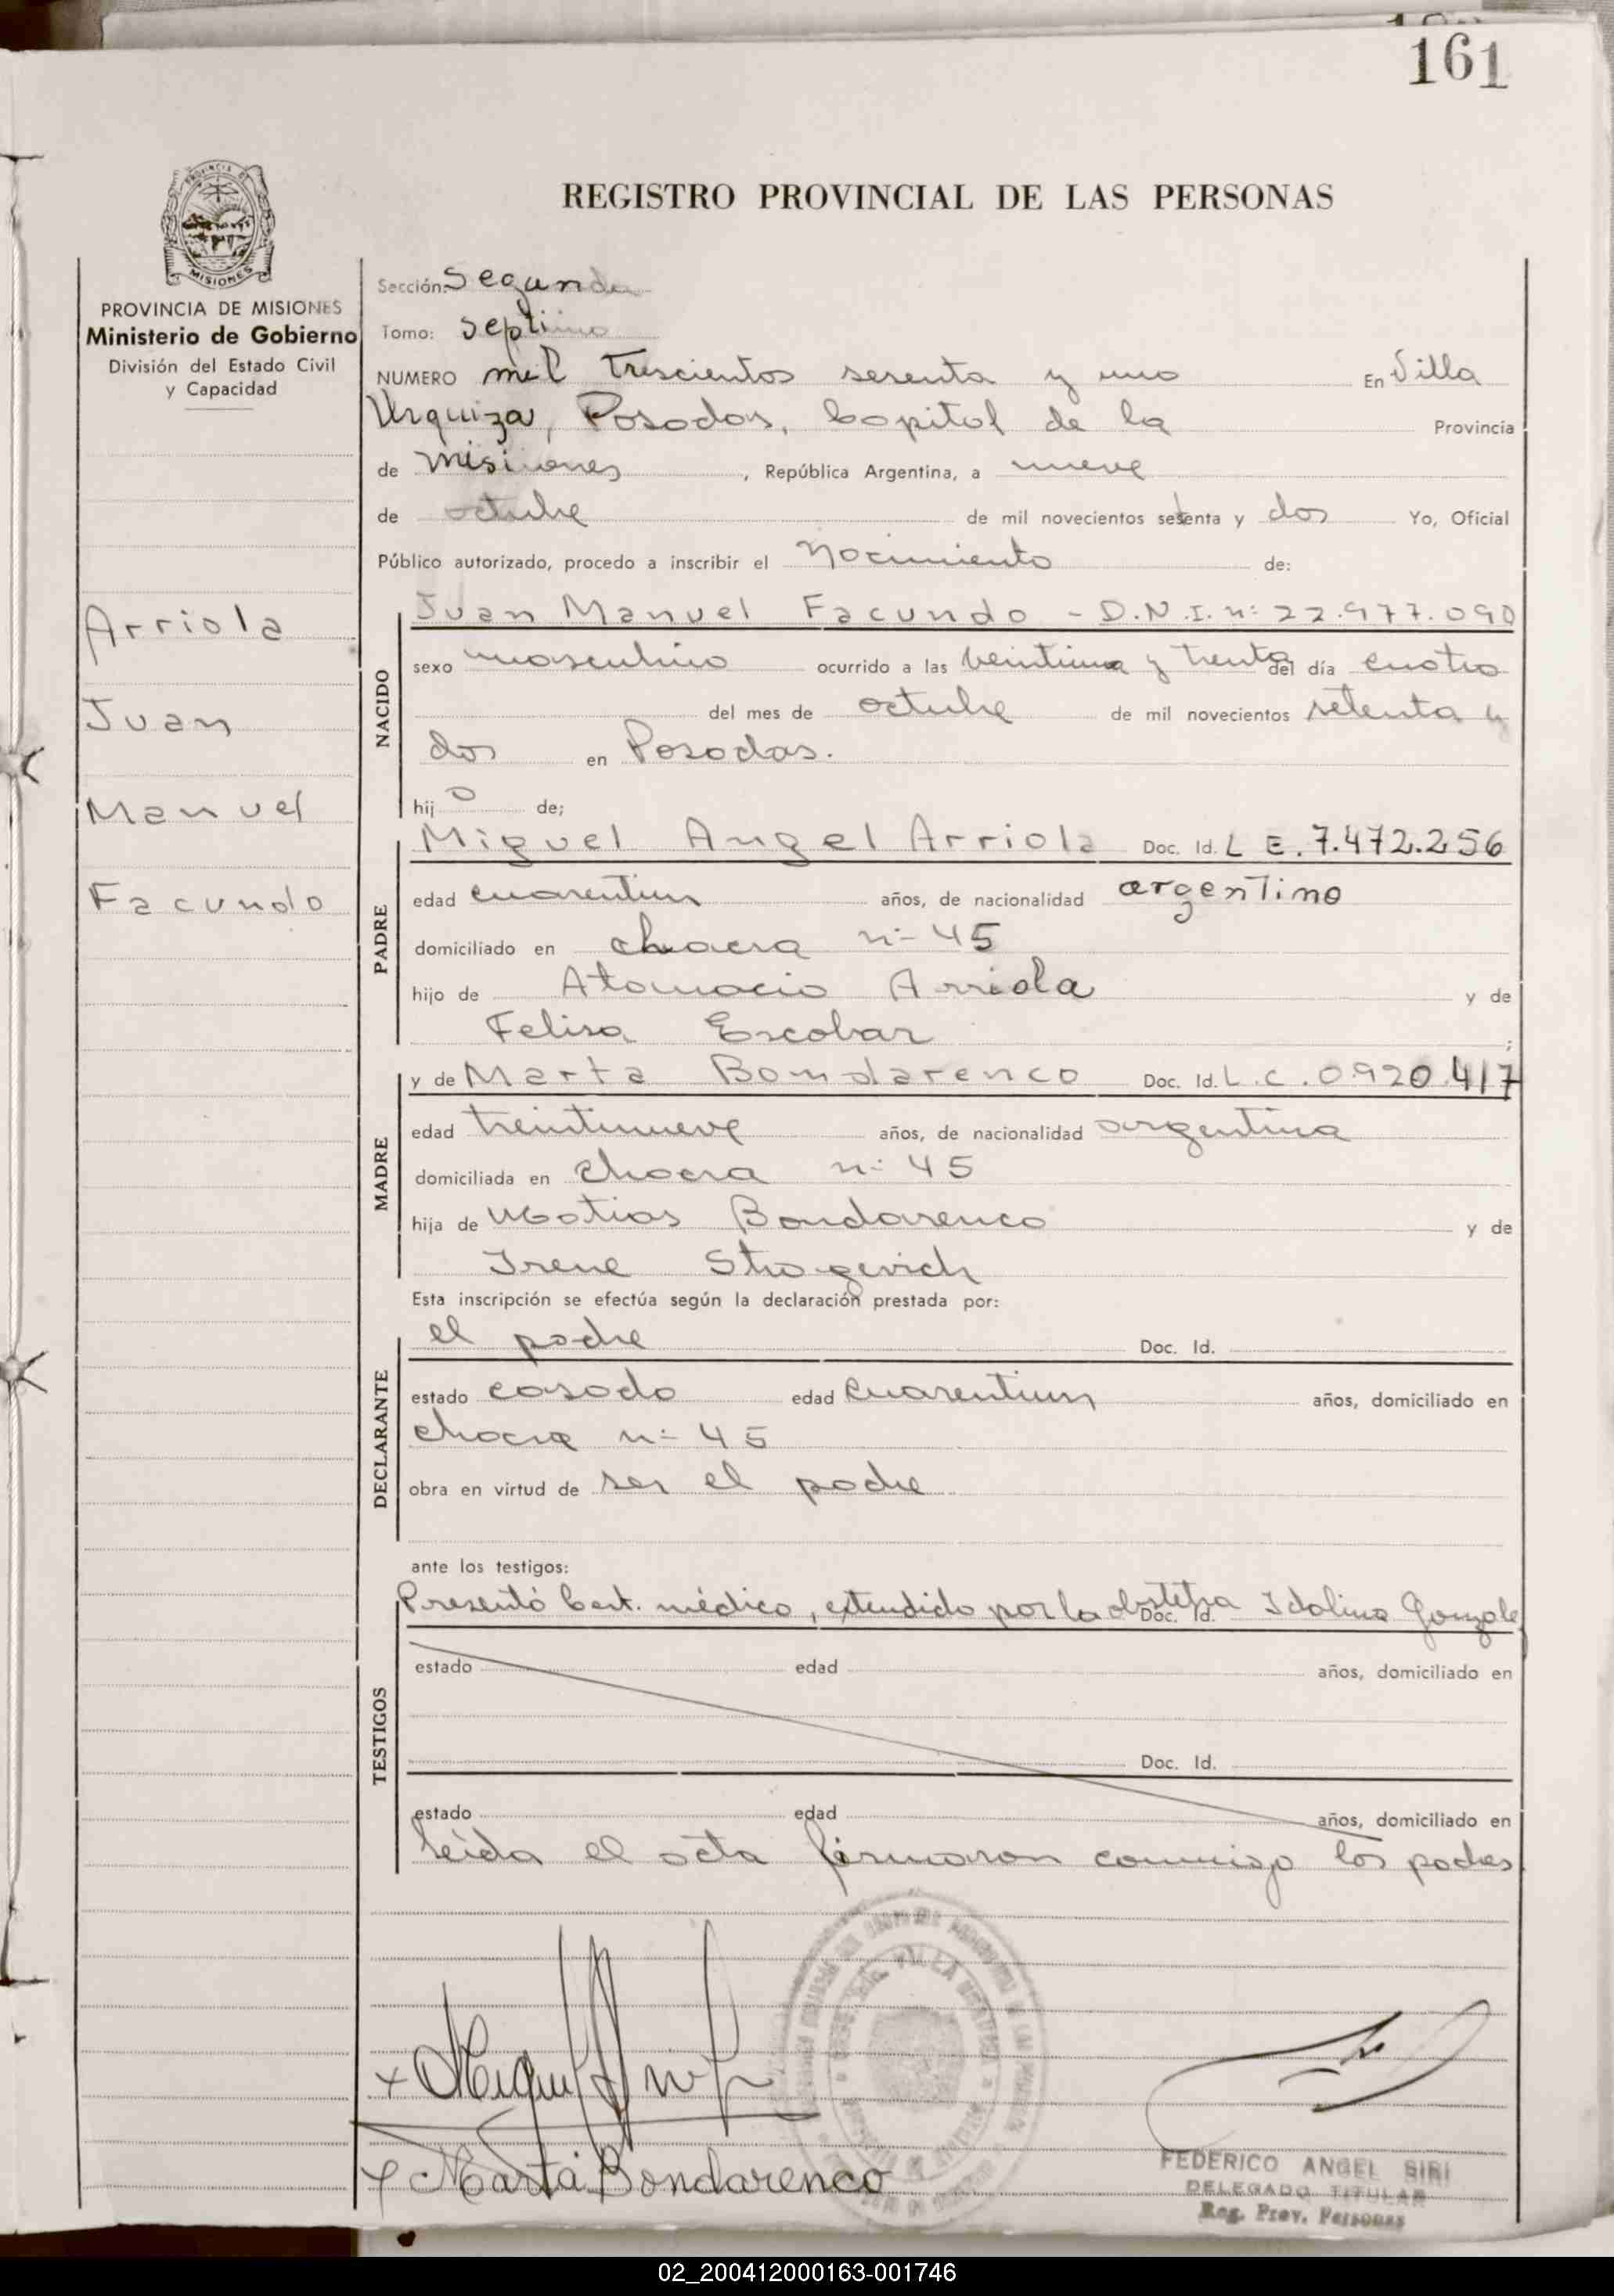 161
PROVINCIA DE MISIONES
PROVINCIA DE MISIONES
Ministerio de Gobierno
División del Estado Civil
y Capacidad
Arriola
Juan
Manuel
Facundo
REGISTRO PROVINCIAL DE LAS PERSONAS
Sección: Segunda
Tomo: Septimo
NUMERO mil Trescientos sesenta y uno En Villa
Urquiza, Posadas, Capital de la Provincia
de Misiones, República Argentina, a nueve
de octubre de mil novecientos setenta y dos Yo, Oficial
Público autorizado, procedo a inscribir el Nacimiento de:
NACIDO
Juan Manuel Facundo - D.N.I. n: 22.977.090
sexo masculino ocurrido a las veintiuna y treinta del día cuatro
del mes de octubre de mil novecientos setenta y
dos en Posadas.
hijo de;
PADRE
Miguel Angel Arriola Doc. Id. L E. 7.472.256
edad cuarentiun años, de nacionalidad argentino
domiciliado en chacra n: 45
hijo de Atanacio Arriola y de
Felisa Escobar ;
MADRE
y de Marta Bondarenco Doc. Id. L.C. 0.920.417
edad treintinueve años, de nacionalidad argentina
domiciliada en chacra n: 45
hija de Matias Bondarenco y de
Irene
Esta inscripción se efectúa según la declaración prestada por:
DECLARANTE
el padre Doc. Id.
estado casado edad cuarentiun años, domiciliado en
chacra n: 45
obra en virtud de ser el padre
ante los testigos:
TESTIGOS
Presentó Cert. médico, extendido por la obstetra Doc. Id. Idolina Gonzale
estado edad años, domiciliado en
Doc. Id.
estado edad años, domiciliado en
leída el acta firmaron conmigo los padres
x Marta Bondarenco
FEDERICO ANGEL SIRI
DELEGADO TITULAR
Reg. Prov. Personas
02_200412000163-001746